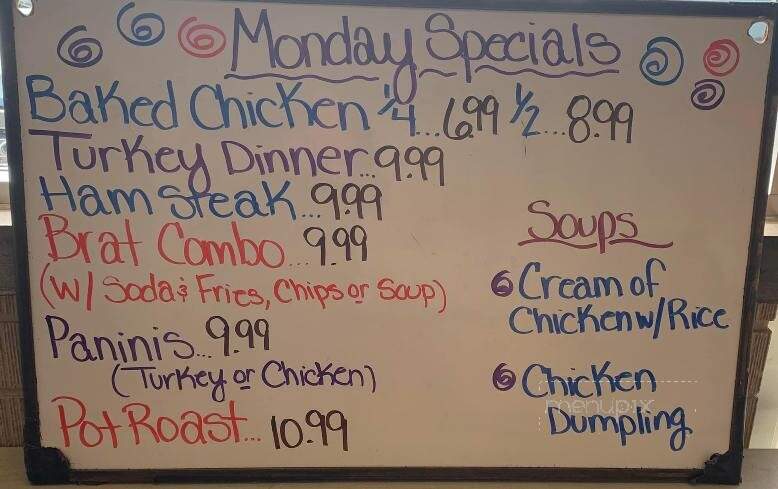 Monday Specials
Baked Chicken 1/4...6.99 1/2...8.99
Turkey Dinner...9.99
Ham Steak...9.99
Brat Combo...9.99
(w/ Soda & Fries, Chips or Soup)
Paninis...9.99
(Turkey or Chicken)
Pot Roast...10.99
Soups
Cream of
Chicken w/Rice
Chicken
Dumpling
menupix